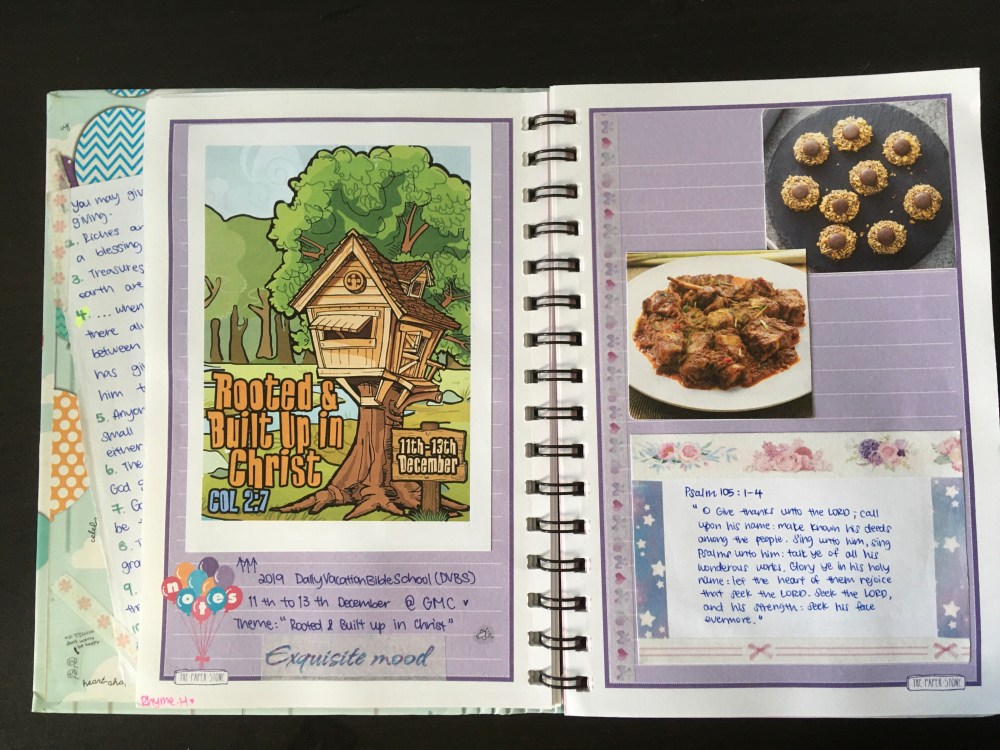 you may giv
giving.
2. Riches ar
a blessing
3. Treasures
earth are
4. .... when
there al
between
has gi
him t
5. Anyon
small
either
6. The
God g
7. Go
be
8. T
gra
9.
th
10
celeb
heart-aha,
Rooted &
Built Up in
Christ
COL 2:7
11th-13th
December
notes
2019 Daily Vacation Bible School (DVBS)
11th to 13th December @ GMC
Theme: "Rooted & Built up in Christ"
Exquisite mood
THE PAPER STONE
Rhyme.H
Psalm 105:1-4
"O Give thanks unto the LORD; call
upon his name: make known his deeds
among the people. Sing unto him, sing
Psalms unto him: talk ye of all his
wonderous works. Glory ye in his holy
name: let the heart of them rejoice
that seek the LORD. Seek the LORD,
and his strength: seek his face
evermore."
THE PAPER STONE